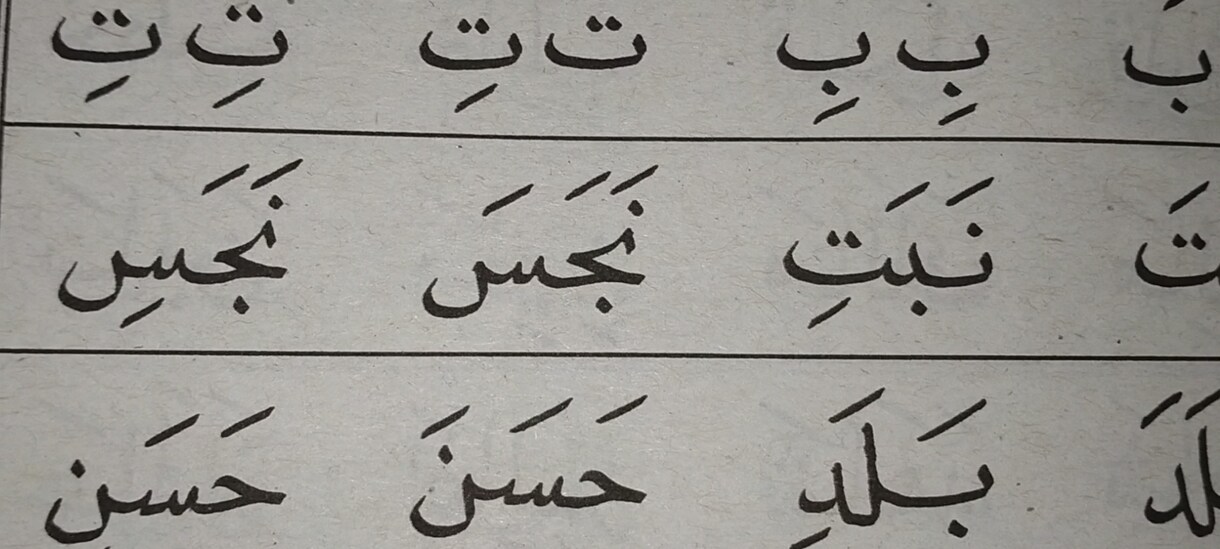 ب بِ بِ ت تِ تِ تِ
نَبَتِ نَجَسَ نَجَسِ
بَلَدِ حَسَنَ حَسَنِ